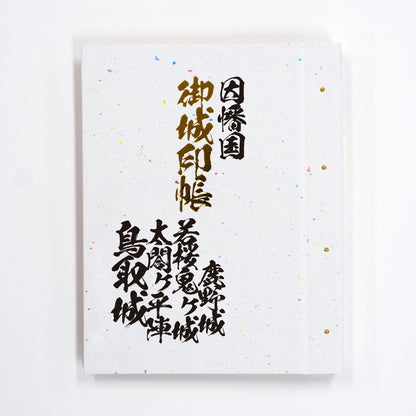 因幡国
御城印帳
鹿野城
若桜鬼ヶ城
太閤ヶ平陣
鳥取城